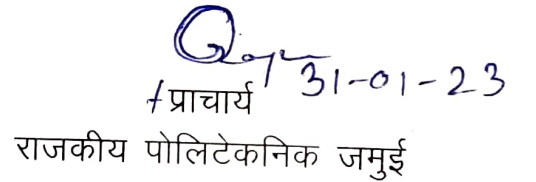 31-01-23
प्राचार्य
राजकीय पोलिटेकनिक जमुई